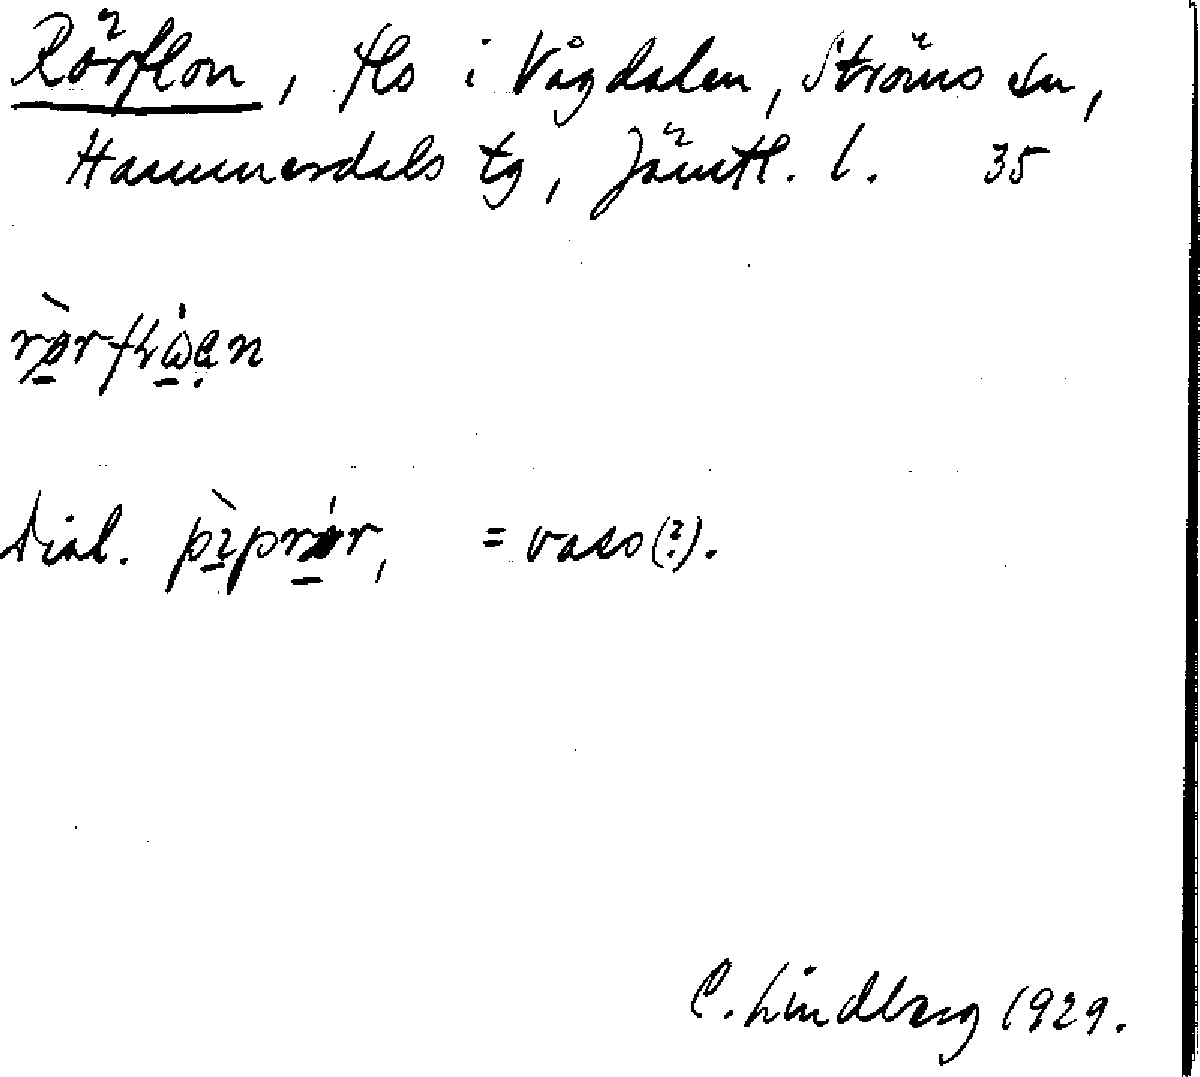 Rörflon, fls i Vågdalen, Ströms sn,
Hammerdals tg, Jämtl. l. 35
Dial. = vass(?).
C. Lindberg 1929.